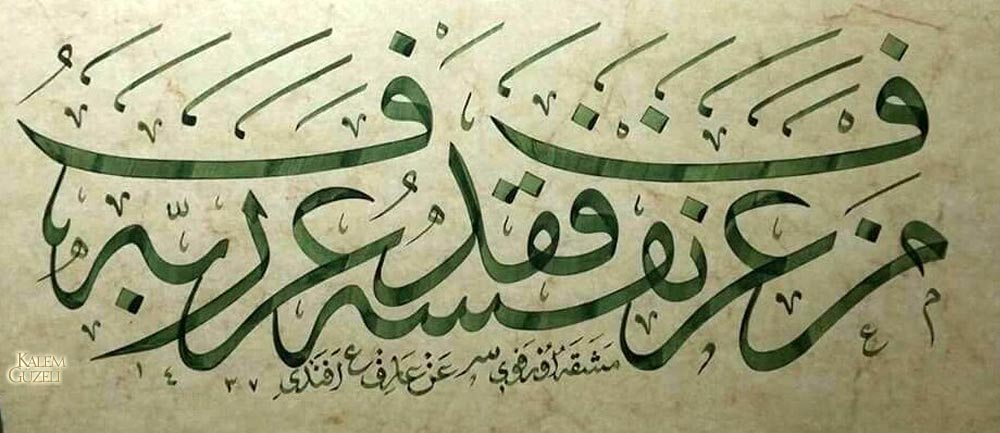 من عرف نفسه فقد عرف ربه
مشقه عن عارف افندي
١٤٣٧
KALEM
GUZELİ